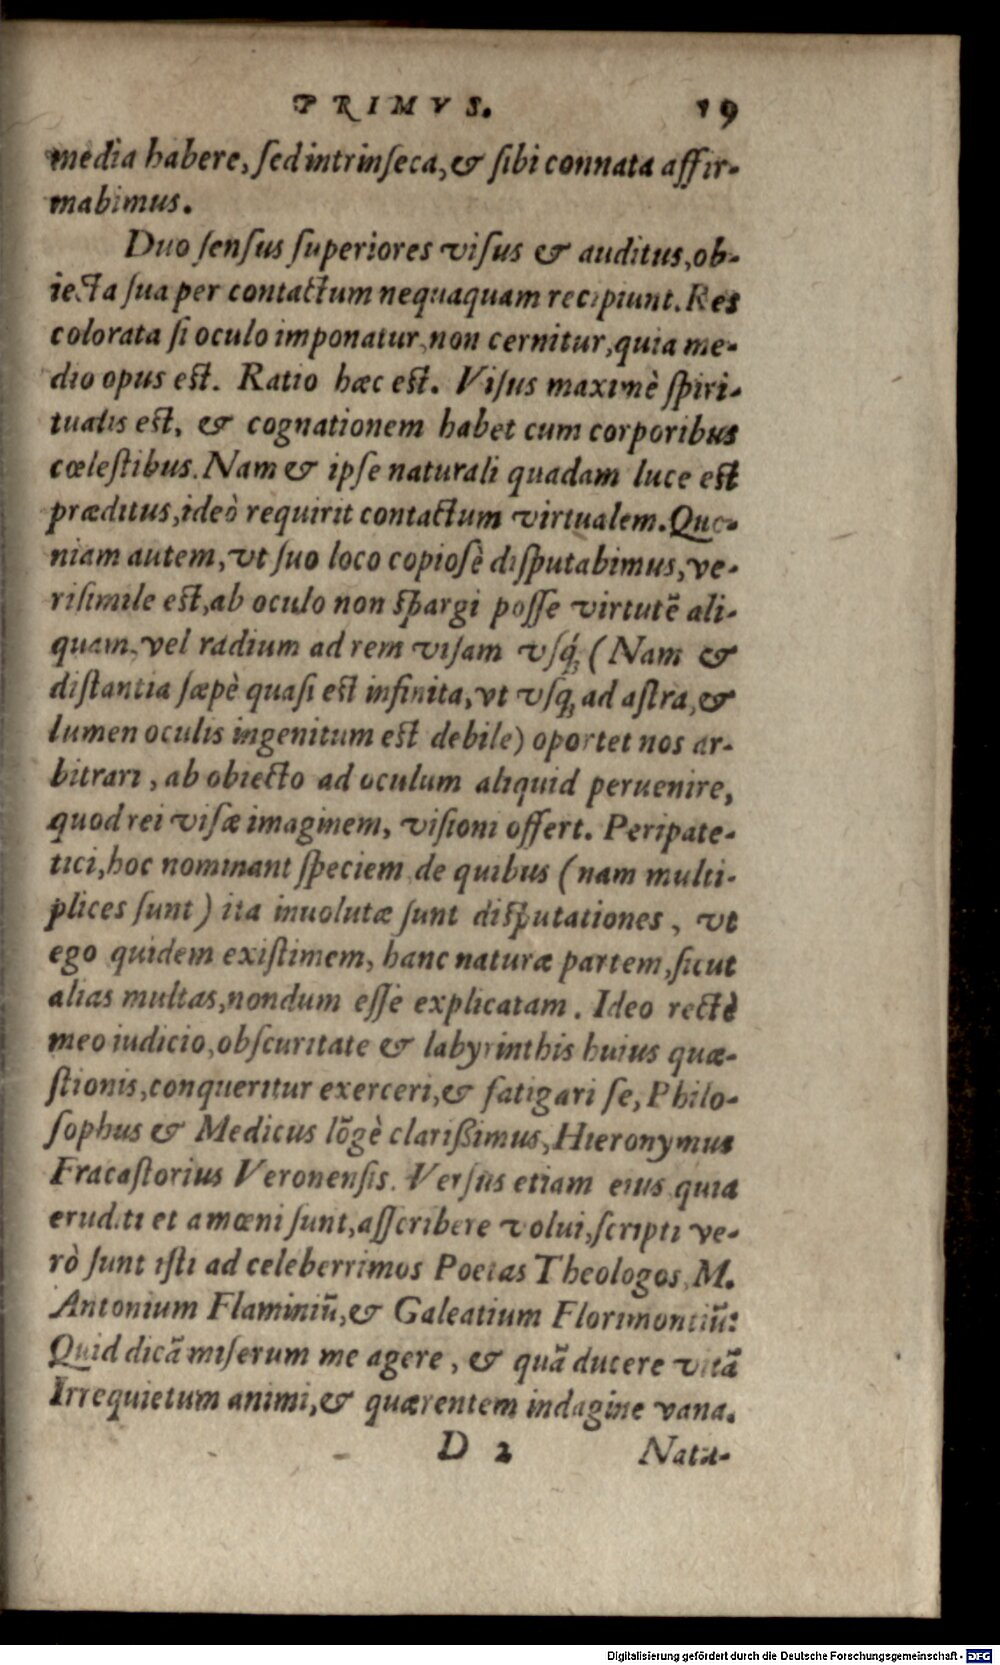 PRIMVS. 19
media habere, ſed intrinſeca, & ſibi connata affir-
mabimus.
Duo ſenſus ſuperiores viſus & auditus, ob-
iecta ſua per contactum nequaquam recipiunt. Res
colorata ſi oculo imponatur, non cernitur, quia me-
dio opus est. Ratio hæc est. Viſus maximè ſpiri-
tualis est, & cognationem habet cum corporibus
cœleſtibus. Nam & ipſe naturali quadam luce est
præditus, ideò requirit contactum virtualem. Quo-
niam autem, vt ſuo loco copioſè diſputabimus, ve-
riſimile est, ab oculo non spargi poſſe virtutẽ ali-
quam, vel radium ad rem viſam vſq́; (Nam &
diſtantia ſæpè quaſi est infinita, vt vſq; ad aſtra, &
lumen oculis ingenitum est debile) oportet nos ar-
bitrari, ab obiecto ad oculum aliquid peruenire,
quod rei viſæ imaginem, viſioni offert. Peripate-
tici, hoc nominant ſpeciem, de quibus (nam multi-
plices ſunt) ita inuolutæ ſunt disputationes, vt
ego quidem exiſtimem, hanc naturæ partem, ſicut
alias multas, nondum eſſe explicatam. Ideo rectè
meo iudicio, obſcuritate & labyrinthis huius quæ-
ſtionis, conqueritur exerceri, & fatigari ſe, Philo-
ſophus & Medicus lõgè clariſsimus, Hieronymus
Fracaſtorius Veronenſis. Verſus etiam eius quia
eruditi et amœni ſunt, aſſcribere volui, ſcripti ve-
rò ſunt iſti ad celeberrimos Poetas Theologos, M.
Antonium Flaminiũ, & Galeatium Florimontiũ:
Quid dicã miſerum me agere, & quã ducere vitã
Irrequietum animi, & quærentem indagine vana.
D 2 Natu-
Digitalisierung gefördert durch die Deutsche Forschungsgemeinschaft - DFG